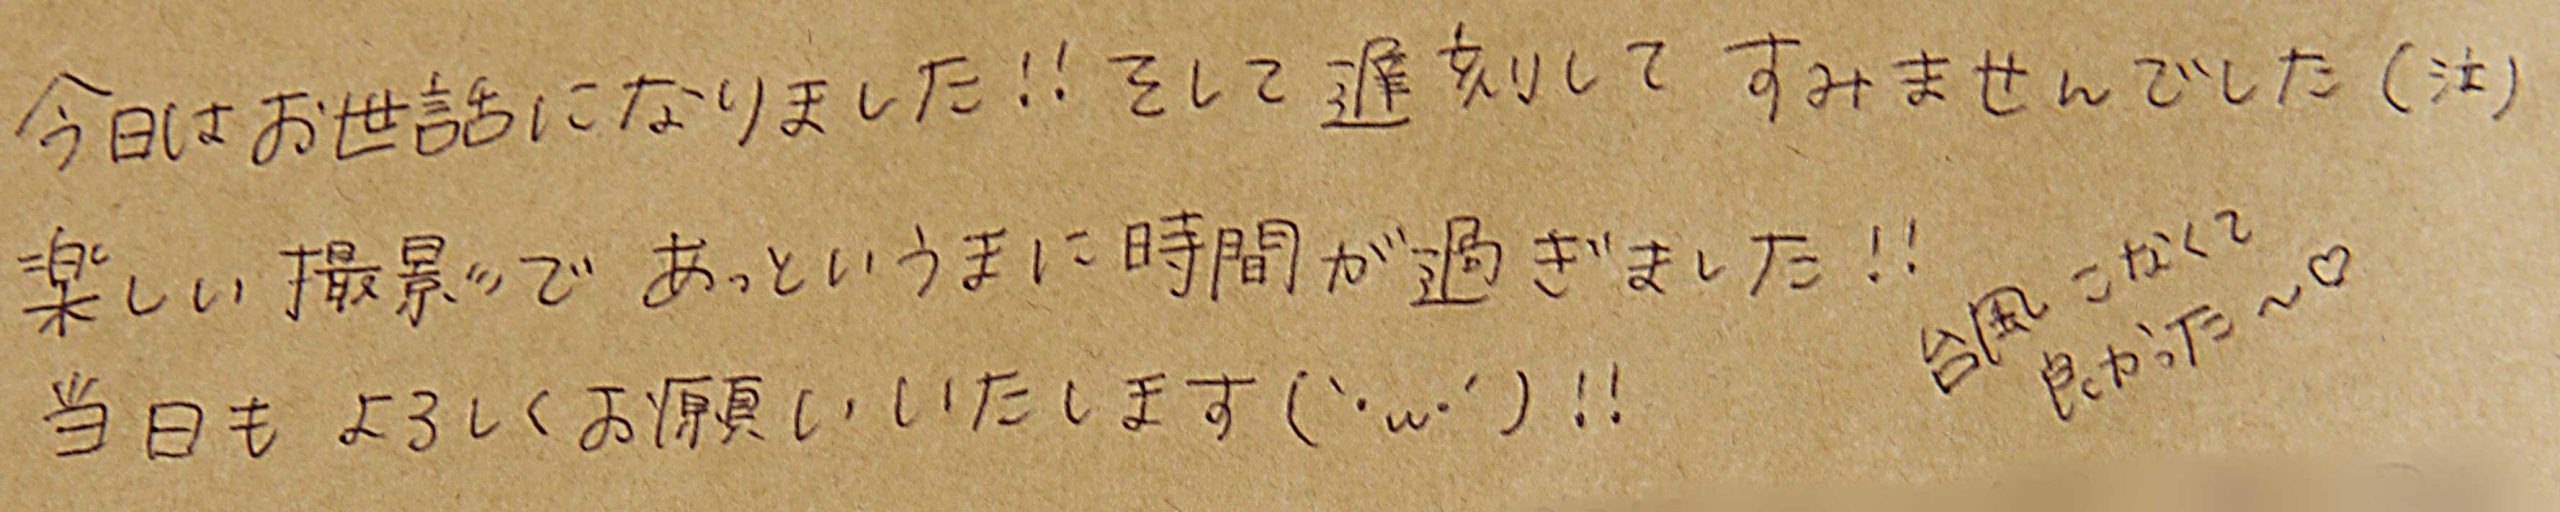 今日はお世話になりました!!そして遅刻してすみませんでした(泣)
楽しい撮影でであっというまに時間が過ぎました!!
台風こなくて
良かった～♡
当日もよろしくお願いいたします(`･ω･´)!!